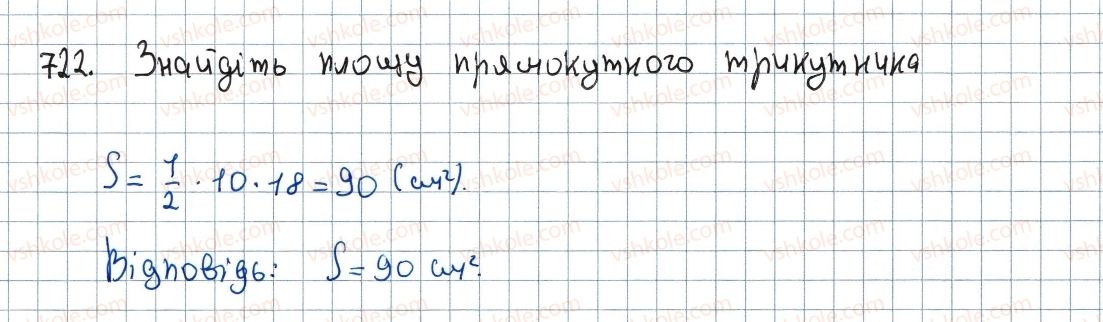 722. Знайдіть площу прямокутного трикутника
S = 1/2 · 10 · 18 = 90 (см²).
Відповідь: S = 90 см².